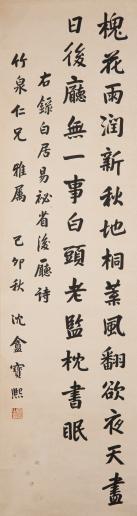 槐花雨潤新秋地桐葉風翻欲夜天盡
日後廳無一事白頭老監枕書眠
右錄白居易祕省後廳詩
竹泉仁兄雅屬 己卯秋 沈盦寶熙